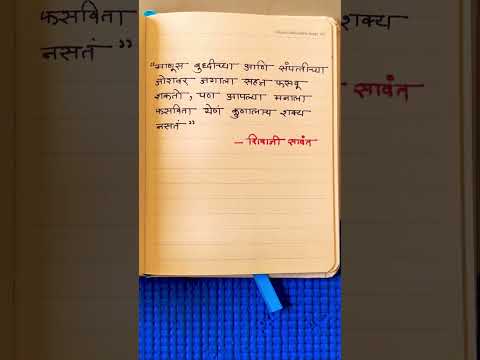 “माणूस बुध्दीच्या आणि संपत्तीच्या
जोरावर जगाला सहज फसवू
शकतो, पण आपल्या मनाला
फसविता येणं कुणालाच शक्य
नसतं”
– शिवाजी सावंत